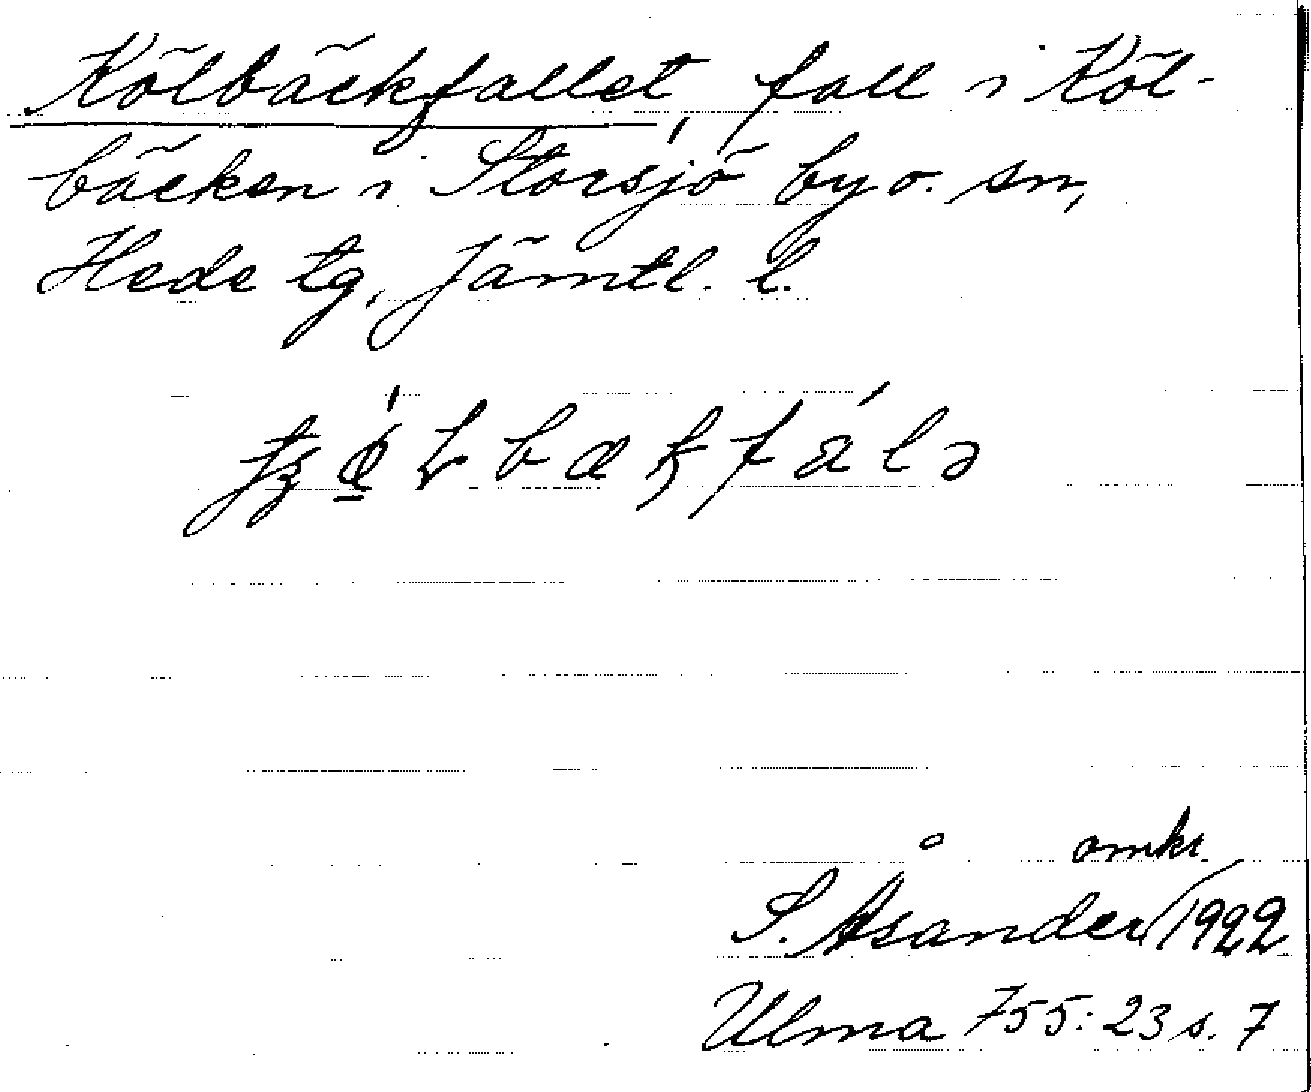 Kölbäckfallet, fall i Köl-
bäcken i Storsjö by o. sn,
Hede tg, Jämtl. l.
omkr.
S. Åsander 1922.
Ulma 755:23 s. 7